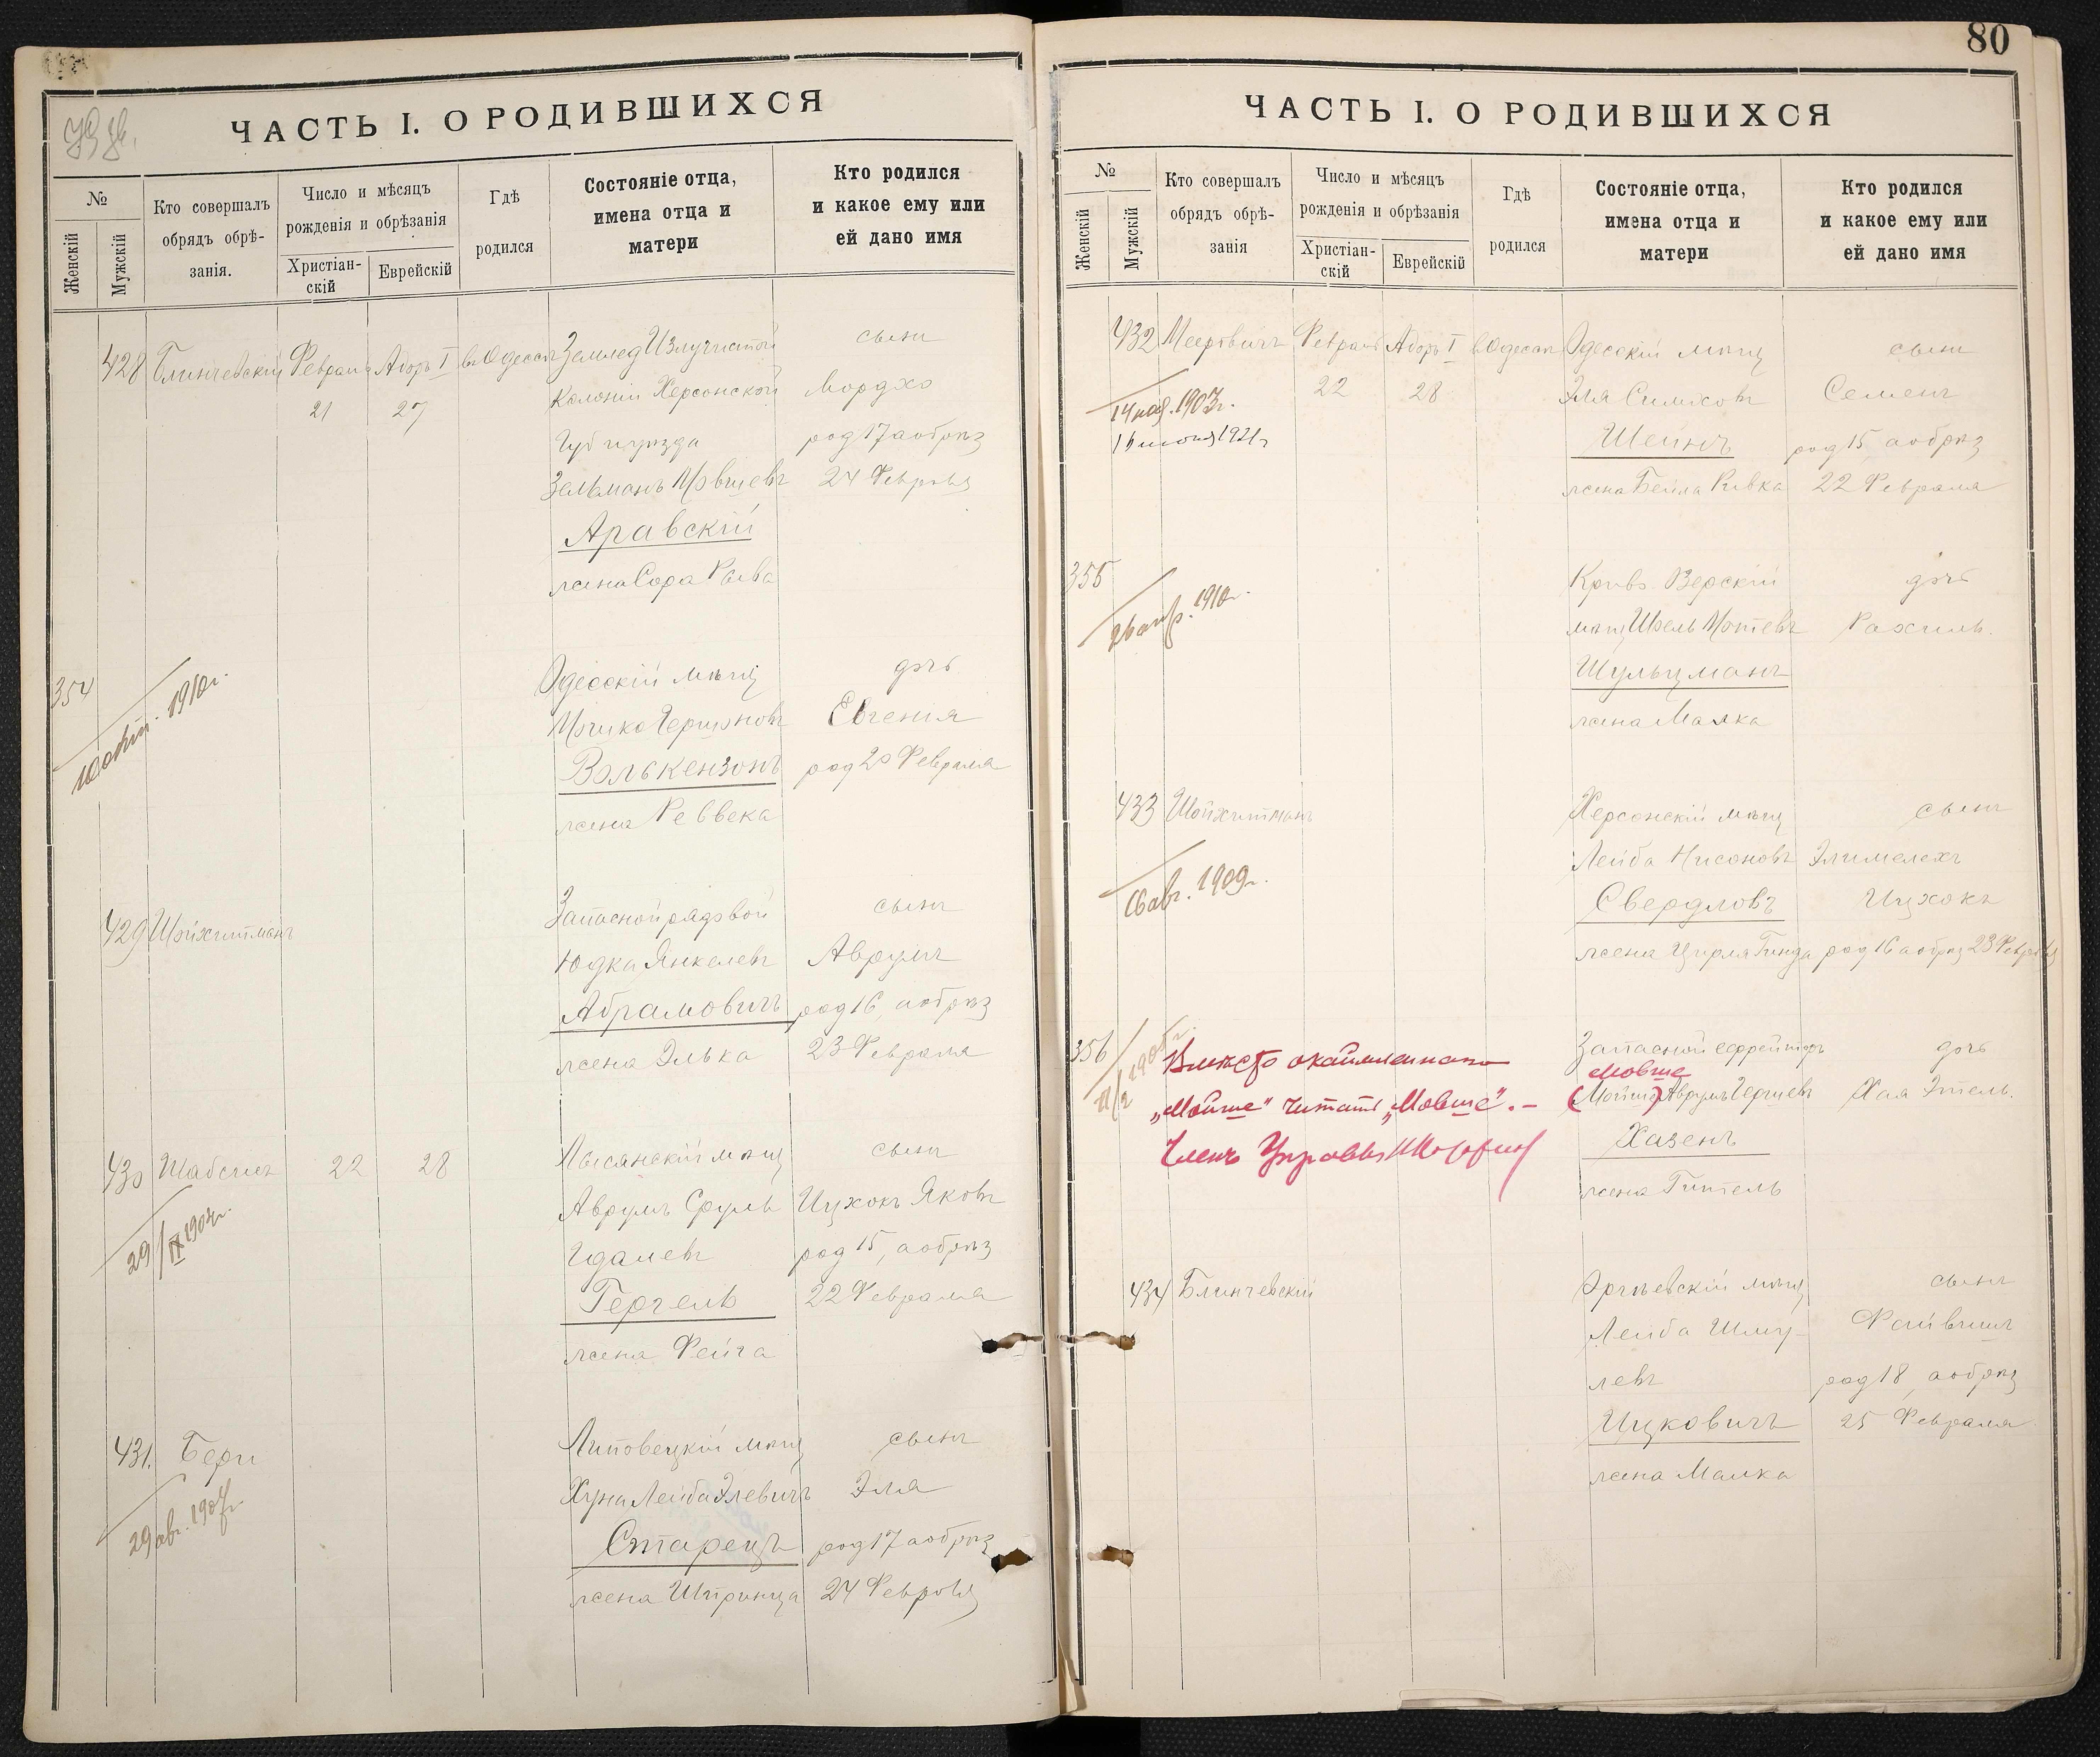 ЧАСТЬ I. О РОДИВШИХСЯ
№
Женскій
Мужскій
Кто совершалъ
обрядъ обрѣ-
занія.
Число и мѣсяцъ
рожденія и обрѣзанія
Христіан-
скій
Еврейскій
Гдѣ
родился
Состояніе отца,
имена отца и
матери
Кто родился
и какое ему или
ей дано имя
428 Блинчевскій Февраля Адоръ I въ Одессѣ Землед Излучистой сынъ
21 27 Колоніи Херсонской Мордхо
Губ и уѣзда род 17 а обрѣз
Зельманъ Мовшевъ 24 Февраля
Аравскій
жена Сора Ривва
354 Одесскій мѣщ дочь
10 окт. 1910г.
Ицико Гершоновъ Евгенія
Волькензонъ род 20 Февраля
жена Реввека
429 Шойхитманъ Запасной рядовой сынъ
Юдка Янкелевъ Аврумъ
Абрамовичъ род 16, а обрѣз
жена Элька 23 Февраля
430 Шабсисъ 22 28 Лысянскій мѣщ сынъ
29/IX 1904г.
Аврумъ Сруль Ицхокъ Яковъ
Идалевъ род 15, а обрѣз
Герчель 22 Февраля
жена Фейга
431. Бери Липовецкій мѣщ сынъ
29 авг. 1907г.
Хуна Лейба Элевичъ Эля
Старецъ род 17 а обрѣз
жена Шпринца 24 Февраля
80
ЧАСТЬ I. О РОДИВШИХСЯ
№
Женскій
Мужскій
Кто совершалъ
обрядъ обрѣ-
занія
Число и мѣсяцъ
рожденія и обрѣзанія
Христіан-
скій
Еврейскій
Гдѣ
родился
Состояніе отца,
имена отца и
матери
Кто родился
и какое ему или
ей дано имя
432 Мееровичъ Февраля Адоръ I въ Одессѣ Одесскій мѣщ сынъ
22 28 Эля Симховъ Семенъ
1903г.
16 іюня 1921г
Шеинъ род 15, а обрѣз
жена Бейла Ривка 22 Февраля
355 Кривоозерскій дочь
26 апр. 1910г.
мѣщ Шоель Мотевъ Рахиль.
Шульцманъ
жена Малка
433 Шойхитманъ Херсонскій мѣщ сынъ
Лейба Нисоновъ Элимелехъ
16 авг. 1909г.
Свердловъ Ицхокъ
жена Цирля Гинда род 16 а обрѣз 23 Февраля
356 Запасной ефрейторъ дочь
Вмѣсто окаймленнаго
Мовше
„Мойше" читать „Мовше". – (Мойше) Аврумъ Гершевъ Хая Этель.
Членъ Управы
Хазенъ
жена Гитель
434 Блинчевскій Оргѣевскій мѣщ сынъ
Лейба Шму- Файвишъ
левъ род 18, а обрѣз
Ицковичъ 25 Февраля
жена Малка